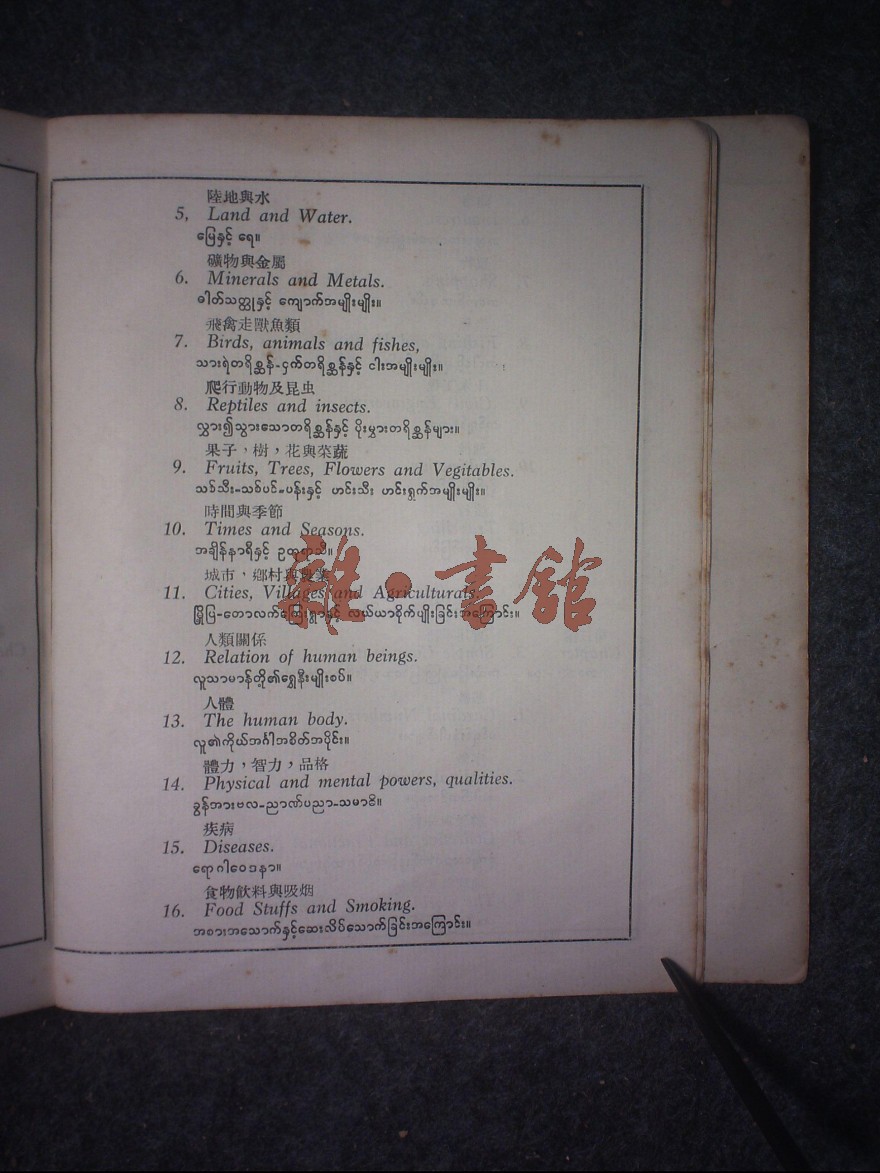 陸地與水
5, Land and Water.
မြေနှင့် ရေ။
礦物與金屬
6. Minerals and Metals.
ဓါတ်သတ္တုနှင့် ကျောက်အမျိုးမျိုး။
飛禽走獸魚類
7. Birds, animals and fishes,
သားရဲတရိစ္ဆန်-ငှက်တရိစ္ဆန်နှင့် ငါးအမျိုးမျိုး။
爬行動物及昆虫
8. Reptiles and insects.
လွှား၍သွားသောတရိစ္ဆန်နှင့် ပိုးမွှားတရိစ္ဆန်များ။
果子，樹，花與菜蔬
9. Fruits, Trees, Flowers and Vegitables.
သစ်သီး-သစ်ပင်-ပန်းနှင့် ဟင်းသီး ဟင်းရွက်အမျိုးမျိုး။
時間與季節
10. Times and Seasons.
အချိန်နာရီနှင့် ဥတုရာသီ။
城市，鄉村與農業
11. Cities, Villages and Agriculturals.
မြို့ပြ-တောလက်ကျေးရွာနှင့် လယ်ယာစိုက်ပျိုးခြင်းအကြောင်း။
人類關係
12. Relation of human beings.
လူသာမာန်တို့၏ရွှေနီးမျိုးစပ်။
人體
13. The human body.
လူ၏ကိုယ်အင်္ဂါအစိတ်အပိုင်း။
體力，智力，品格
14. Physical and mental powers, qualities.
ခွန်အားဗလ-ညာဏ်ပညာ-သမာဓိ။
疾病
15. Diseases.
ရောဂါဝေဒနာ။
食物飲料與吸烟
16. Food Stuffs and Smoking.
အစားအသောက်နှင့်ဆေးလိပ်သောက်ခြင်းအကြောင်း။
雜·書館